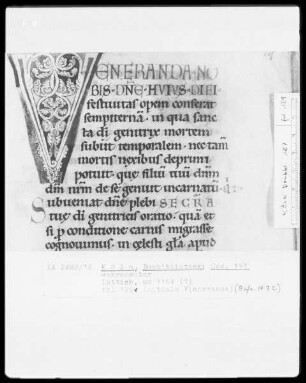 VENERANDA NO
BIS DN̄E HVIVS DIEI
festiuitas opem conferat
sempiternā. in qua sanc
ta dī genitrix mortem
subiit temporalem. nec tam̄
mortis nexibus deprimi
potuit. que filiū tuū dn̄m
nr̄m de se genuit incarnatū.
Subueniat dn̄e plebi SECRA
tue dī genitricis oratio. quā et
si p conditione carnis migrasse
cognouimus. in celesti gl̄a apud
Köln, Dombibliothek
Sakramentar
Initiale V(eneranda)